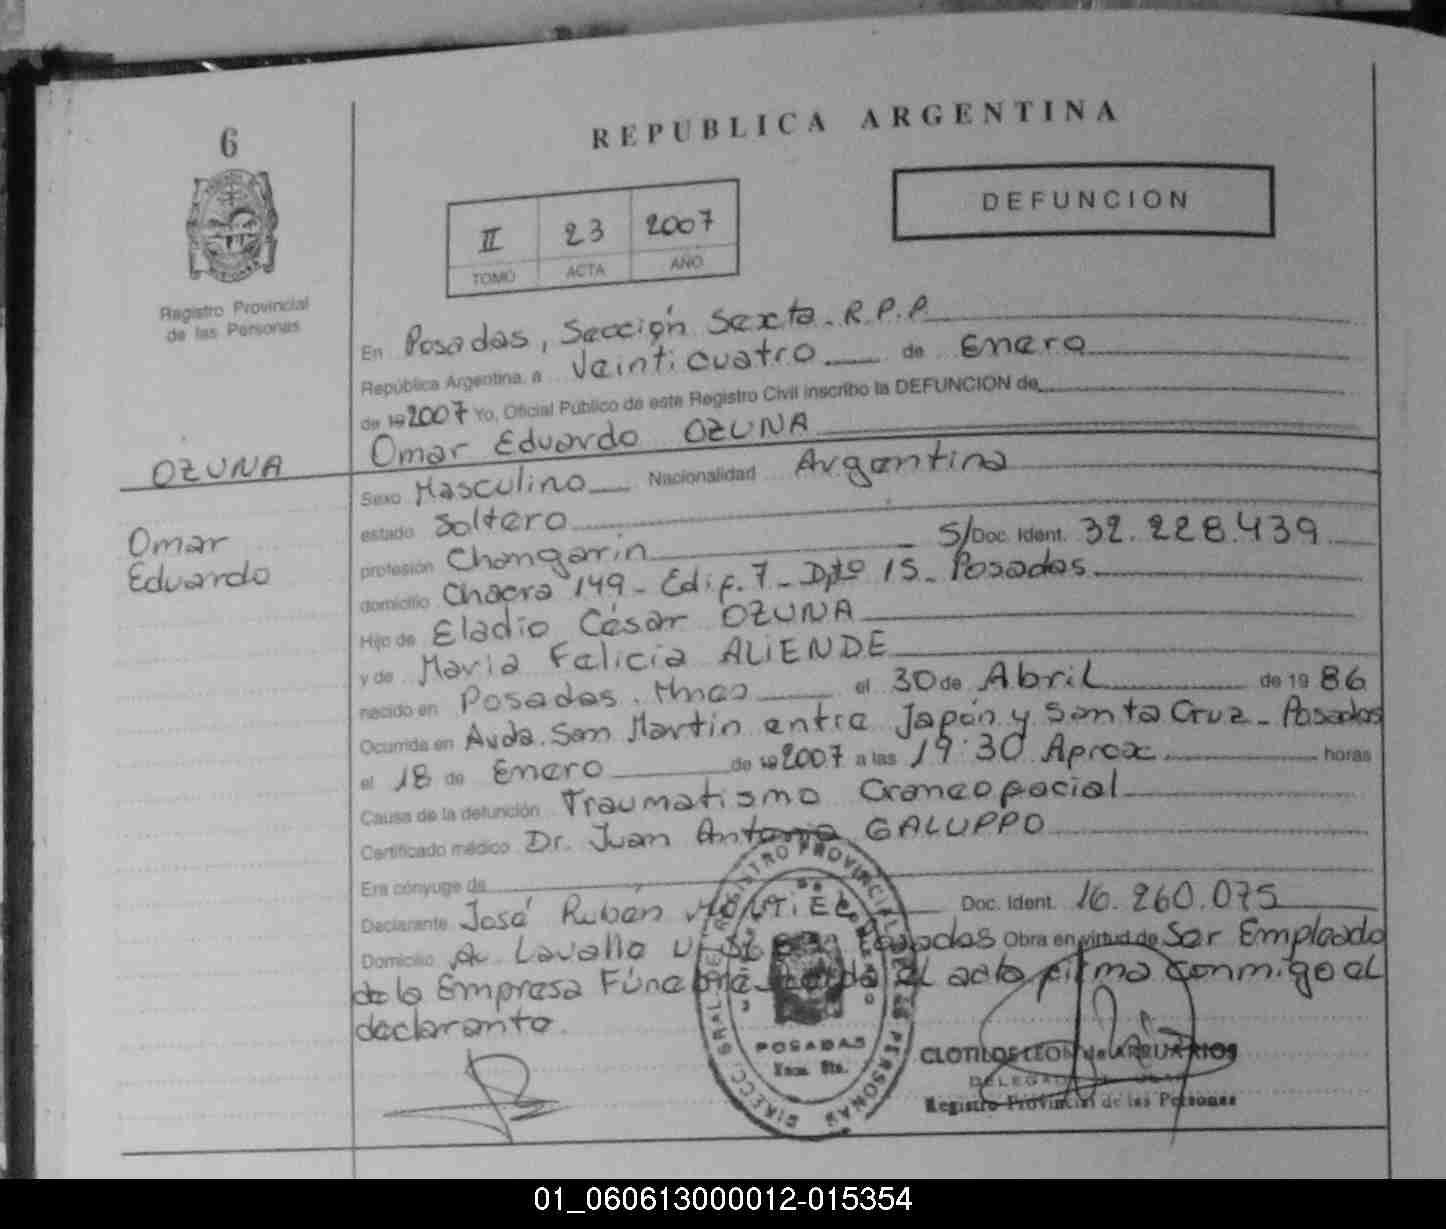 6
REPUBLICA ARGENTINA
DEFUNCION
II 23 2007
TOMO ACTA AÑO
Registro Provincial
de las Personas
En Posadas, Sección Sexta. R.P.P.
República Argentina, a Veinticuatro de Enero
de 19 2007 Yo, Oficial Público de este Registro Civil inscribo la DEFUNCION de
Omar Eduardo OZUNA
OZUNA
Sexo Masculino Nacionalidad Argentina
estado Soltero
Omar
Eduardo
profesión Changarin S/Doc. Ident. 32.228.439
domicilio Chacra 149 - Edif. 7 - Dpto 15 - Posadas
Hijo de Eladio César OZUNA
y de Maria Felicia ALIENDE
nacido en Posadas. Mnes el 30 de Abril de 19 86
Ocurrida en Avda. San Martin entre Japón y Santa Cruz - Posadas
el 18 de Enero de 19 2007 a las 19:30 Aprox horas
Causa de la defunción Traumatismo Craneofacial
Certificado médico Dr. Juan Antonio GALUPPO
Era cónyuge de
Declarante José Ruben MONTIEL Doc. Ident. 16.260.075
Domicilio Av. Lavalle Posadas Obra en virtud de Ser Empleado
de la Empresa Fúnebre el acta firma conmigo el
declarante.
REGISTRO PROVINCIAL DE LAS PERSONAS
POSADAS
DELEGADA
Registro Provincial de las Personas
01_060613000012-015354